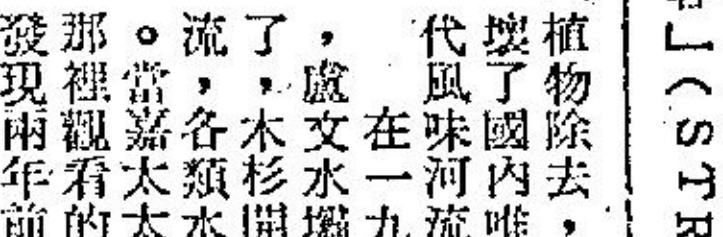 」(STR
植物除去，
壞了國內唯
代風味河流
在一九
，盧文水壩
了，木杉開
流，各類水
。當嘉太太
那裡觀看的
發現兩年前